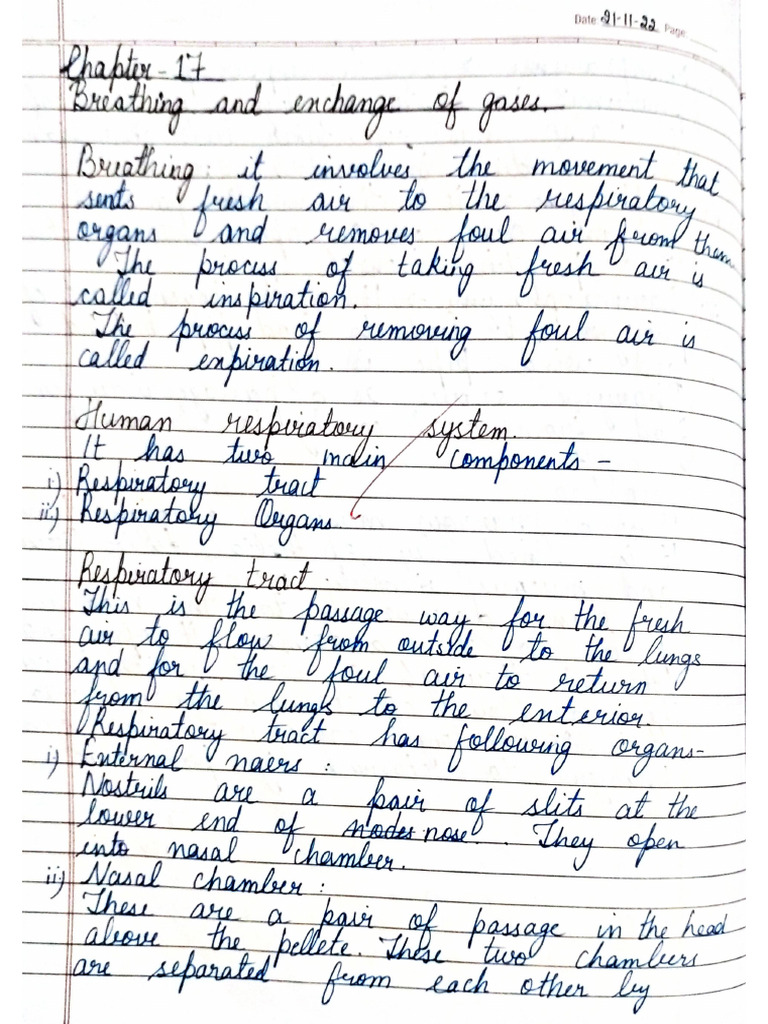 Date 21-11-22 Page
Chapter-17
Breathing and enchange of gases.
Breathing: it involves the movement that
sents fresh air to the respiratory
organs and removes foul air from them
The process of taking fresh air is
called inspiration.
The process of removing foul air is
called enpiration.
Human respiratory system.
It has two main components -
i) Respiratory tract
ii) Respiratory Organs.
Respiratory tract
This is the passage way for the fresh
air to flow from outside to the lungs
and for the foul air to return
from the lungs to the enterior.
Respiratory tract has following organs-
i) Enternal naers:
Nostrils are a pair of slits at the
lower end of nose. They open
into nasal chamber.
ii) Nasal chamber:
These are a pair of passage in the head
above the pellete. These two chambers
are separated from each other by